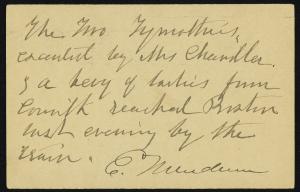 The Two Tymothies,
executed by Mrs Chandler
& a bevy of ladies from
reached Boston
last evening by the
train.
E.